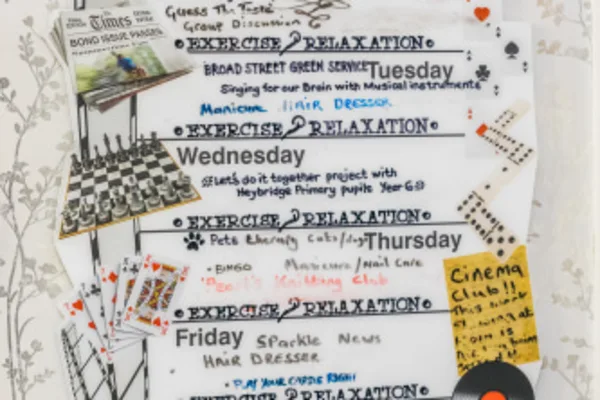 Guess The Taste
The Times
BOND ISSUE PASSES
Group Discussion
EXERCISE RELAXATION
BROAD STREET GREEN SERVICE Tuesday
Singing for our Brain with Musical instruments
Manicure HAIR DRESSER
EXERCISE RELAXATION
Wednesday
Let's do it together project with
Heybridge Primary pupils Year 6
EXERCISE RELAXATION
Pets therapy cats/dogs Thursday
BINGO Manicure/Nail Care
Knitting Club
EXERCISE RELAXATION
Cinema
Club!!
This
Friday Sparkle News
HAIR DRESSER
PLAY YOUR CARDS RIGHT
EXERCISE RELAXATION